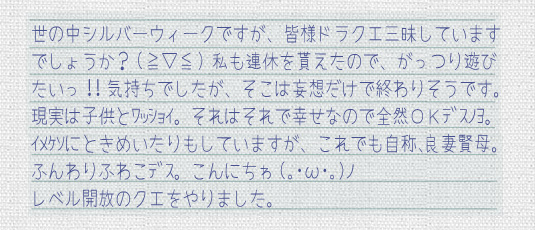 世の中シルバーウィークですが、皆様ドラクエ三昧しています
でしょうか？(≧▽≦) 私も連休を貰えたので、がっつり遊び
たいっ!!気持ちでしたが、そこは妄想だけで終わりそうです。
現実は子供とﾜｯｼｮｲ。それはそれで幸せなので全然ＯＫデスﾉﾖ。
ｲﾒｹｿにときめいたりもしていますが、これでも自称､良妻賢母。
ふんわりふわこデス。こんにちゎ(｡･ω･｡)ﾉ
レベル開放のクエをやりました。